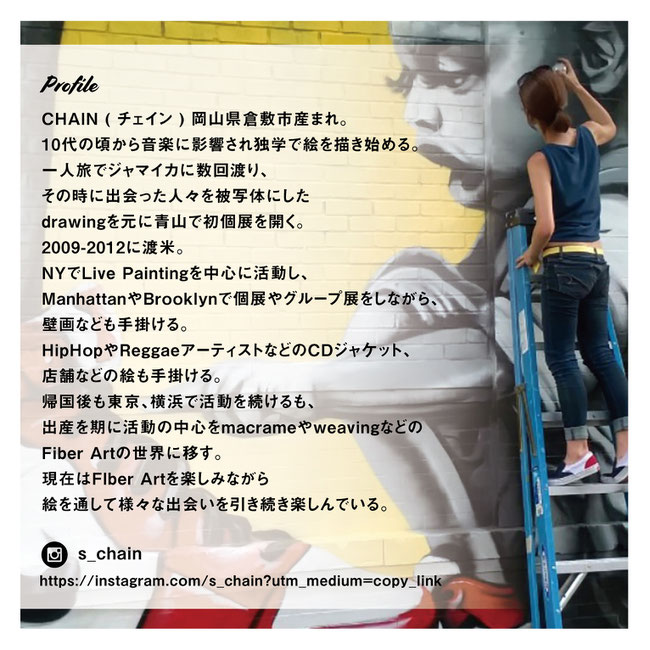 Profile
CHAIN ( チェイン ) 岡山県倉敷市産まれ。
10代の頃から音楽に影響され独学で絵を描き始める。
一人旅でジャマイカに数回渡り、
その時に出会った人々を被写体にした
drawingを元に青山で初個展を開く。
2009-2012に渡米。
NYでLive Paintingを中心に活動し、
ManhattanやBrooklynで個展やグループ展をしながら、
壁画なども手掛ける。
HipHopやReggaeアーティストなどのCDジャケット、
店舗などの絵も手掛ける。
帰国後も東京、横浜で活動を続けるも、
出産を期に活動の中心をmacrameやweavingなどの
Fiber Artの世界に移す。
現在はFIber Artを楽しみながら
絵を通して様々な出会いを引き続き楽しんでいる。
s_chain
https://instagram.com/s_chain?utm_medium=copy_link